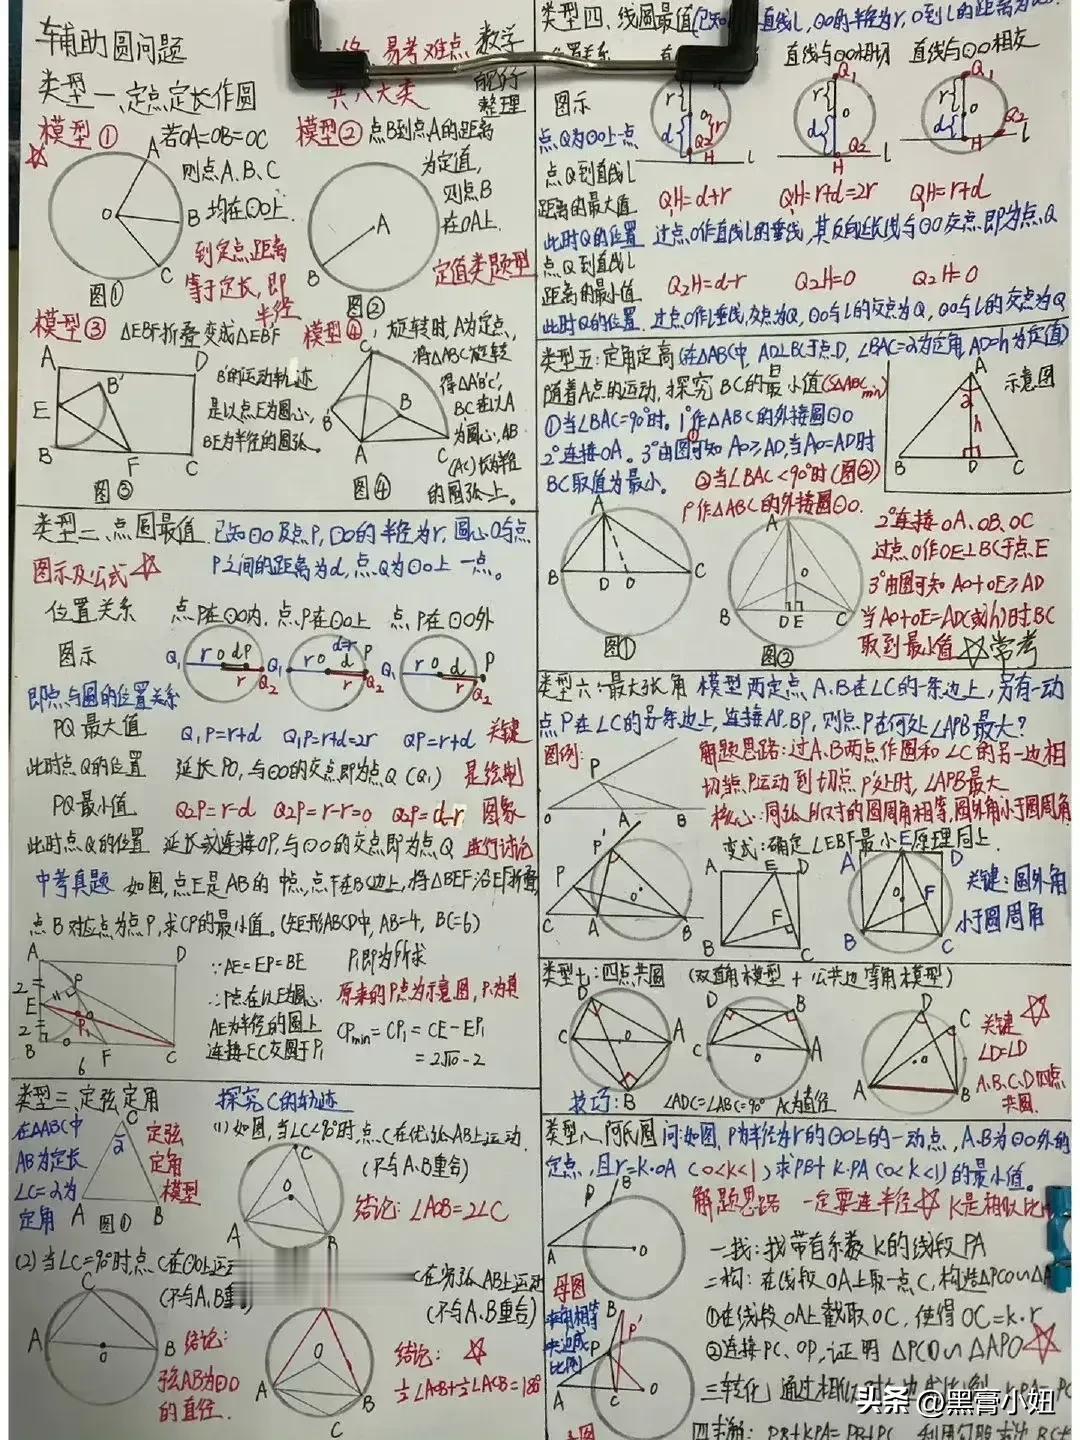 辅助圆问题
易考难点 数学
共八大类
整理
类型一、定点定长作圆
模型①
若OA=OB=OC
则点A、B、C
均在⊙O上.
到定点距离
等于定长,即
半径
A
O
B
C
图①
模型② 点B到点A的距离
为定值,
则点B
在⊙A上.
定值类题型
A
B
图②
模型③ △EBF折叠变成△EB'F
B'的运动轨迹
是以点E为圆心,
BE为半径的圆弧.
A
D
B'
E
B
F
C
图③
模型④, 旋转时,A为定点,
将△ABC旋转
得△AB'C',
B、C在以A
为圆心,AB
(AC)长为半径
的圆弧上。
图④
类型二、点圆最值 已知⊙O及点P,⊙O的半径为r,圆心O与点
P之间的距离为d,点Q为⊙O上一点。
图示及公式
位置关系 点P在⊙O内 点P在⊙O上 点P在⊙O外
图示
即点与圆的位置关系
PQ最大值 Q₁P=r+d Q₁P=r+d=2r QP=r+d 关键
此时点Q的位置 延长PO,与⊙O的交点即为点Q(Q₁) 是绘制
PQ最小值 Q₂P=r-d Q₂P=r-r=0 Q₂P=d-r 图象
此时点Q的位置 延长或连接OP,与⊙O的交点即为点Q 进行讨论
中考真题 如图,点E是AB的中点,点F在BC边上,将△BEF沿EF折叠
点B对应点为点P,求CP的最小值。(矩形ABCD中,AB=4, BC=6)
∵AE=EP=BE P₁即为所求
∴P点在以E为圆心 原来的P点为示意图,P₁为真
AE为半径的圆上 CPmin=CP₁=CE-EP₁
连接EC交圆于P₁ =2√10-2
类型三、定弦定角 探究C的轨迹
在△ABC中
AB为定长
∠C=α为
定角
定弦
定角
模型
图①
(1)如图,当∠C<90°时,点C在优弧AB上运动
(不与A、B重合)
结论: ∠AOB=2∠C
(2)当∠C=90°时,点C在⊙O上运
(不与A、B重
结论:
弦AB为⊙O
的直径.
C在劣弧AB上运动
(不与A、B重合)
结论:
½∠AOB+∠ACB=180°
类型四、线圆最值
直线l,⊙O的半径为r,O到l的距离为
直线与⊙O相切 直线与⊙O相交
图示
点Q为⊙O上一点
点Q到直线l
距离的最大值 Q₁H=d+r Q₁H=r+d=2r Q₁H=r+d
此时Q的位置 过点O作直线l的垂线,其反向延长线与⊙O交点即为点Q
点Q到直线l
距离的最小值 Q₂H=d-r Q₂H=0 Q₂H=0
此时Q的位置 过点O作l垂线,交点为Q,⊙O与l的交点为Q,⊙O与l的交点为Q
类型五:定角定高(在△ABC中,AD⊥BC于点D,∠BAC=α为定角,AD=h为定值)
随着A点的运动,探究BC的最小值(S△ABC min)
示意图
①当∠BAC=90°时。1°作△ABC的外接圆⊙O
2°连接OA。3°由图①可知AO≥AD,当AO=AD时
BC取值为最小。
②当∠BAC<90°时(图②)
1°作△ABC的外接圆⊙O.
2°连接OA、OB、OC
过点O作OE⊥BC于点E
3°由图可知AO+OE≥AD
当AO+OE=AD(或h)时BC
取到最小值 常考
图①
图②
类型六:最大张角 模型 两定点A、B在∠C的一条边上,另有一动
点P在∠C的另一条边上,连接AP、BP,则点P在何处∠APB最大?
图例:
解题思路:过A、B两点作圆和∠C的另一边相
切,当点P运动到切点P'处时,∠APB最大
核心:同弧所对的圆周角相等,圆外角小于圆周角
变式:确定∠EBF最小E原理同上.
关键:圆外角
小于圆周角
类型七:四点共圆 (双直角模型+公共边等角模型)
关键
∠D=∠D
A、B、C、D四点
共圆.
技巧: ∠ADC=∠ABC=90° AC为直径
类型八、阿氏圆 问:如图,P为半径为r的⊙O上的一动点,A、B为⊙O外的
定点,且r=k·OA(0<k<1)求PB+k·PA(0<k<1)的最小值。
解题思路 一定要连半径 K是相似比
一找:找带有系数k的线段PA
二构:在线段OA上取一点C,构造△PCO∽△A
①在线段OA上截取OC,使得OC=k·r
②连接PC、OP,证明△PCO∽△APO
母图
夹角相等
夹边成
比例
头条 @黑膏小妞